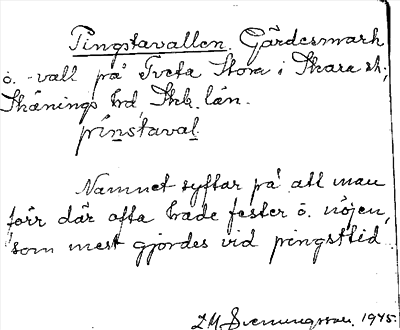 Pingstavallen. Gärdesmark
o. -vall på Tveta Stora i Skara st;
Skånings hd, Skb. län.
pinstaval.
Namnet syftar på att man
förr där ofta hade fester o. nöjen,
som mest gjordes vid pingsttid
Svenningsson, 1945.